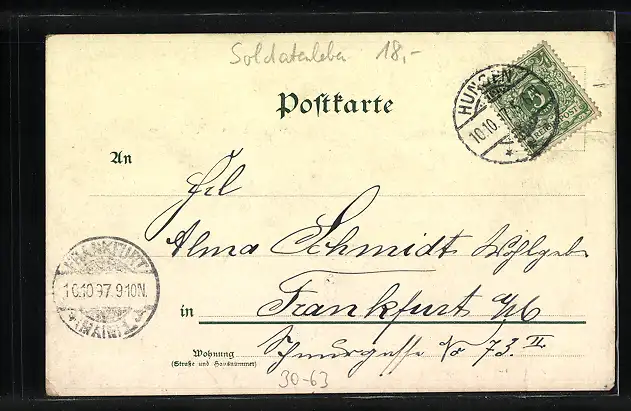 Soldatenleben 18,-
Postkarte
HUNGEN
10.10.
5
REICHSPOST
An
Frl
Alma Schmidt Wohlgeb
FRANKFURT
10.10.97.9-10N.
(MAIN)
in Frankfurt a/M
Wohnung
(Straße und Hausnummer)
Schnurgasse No 73.II
30-63